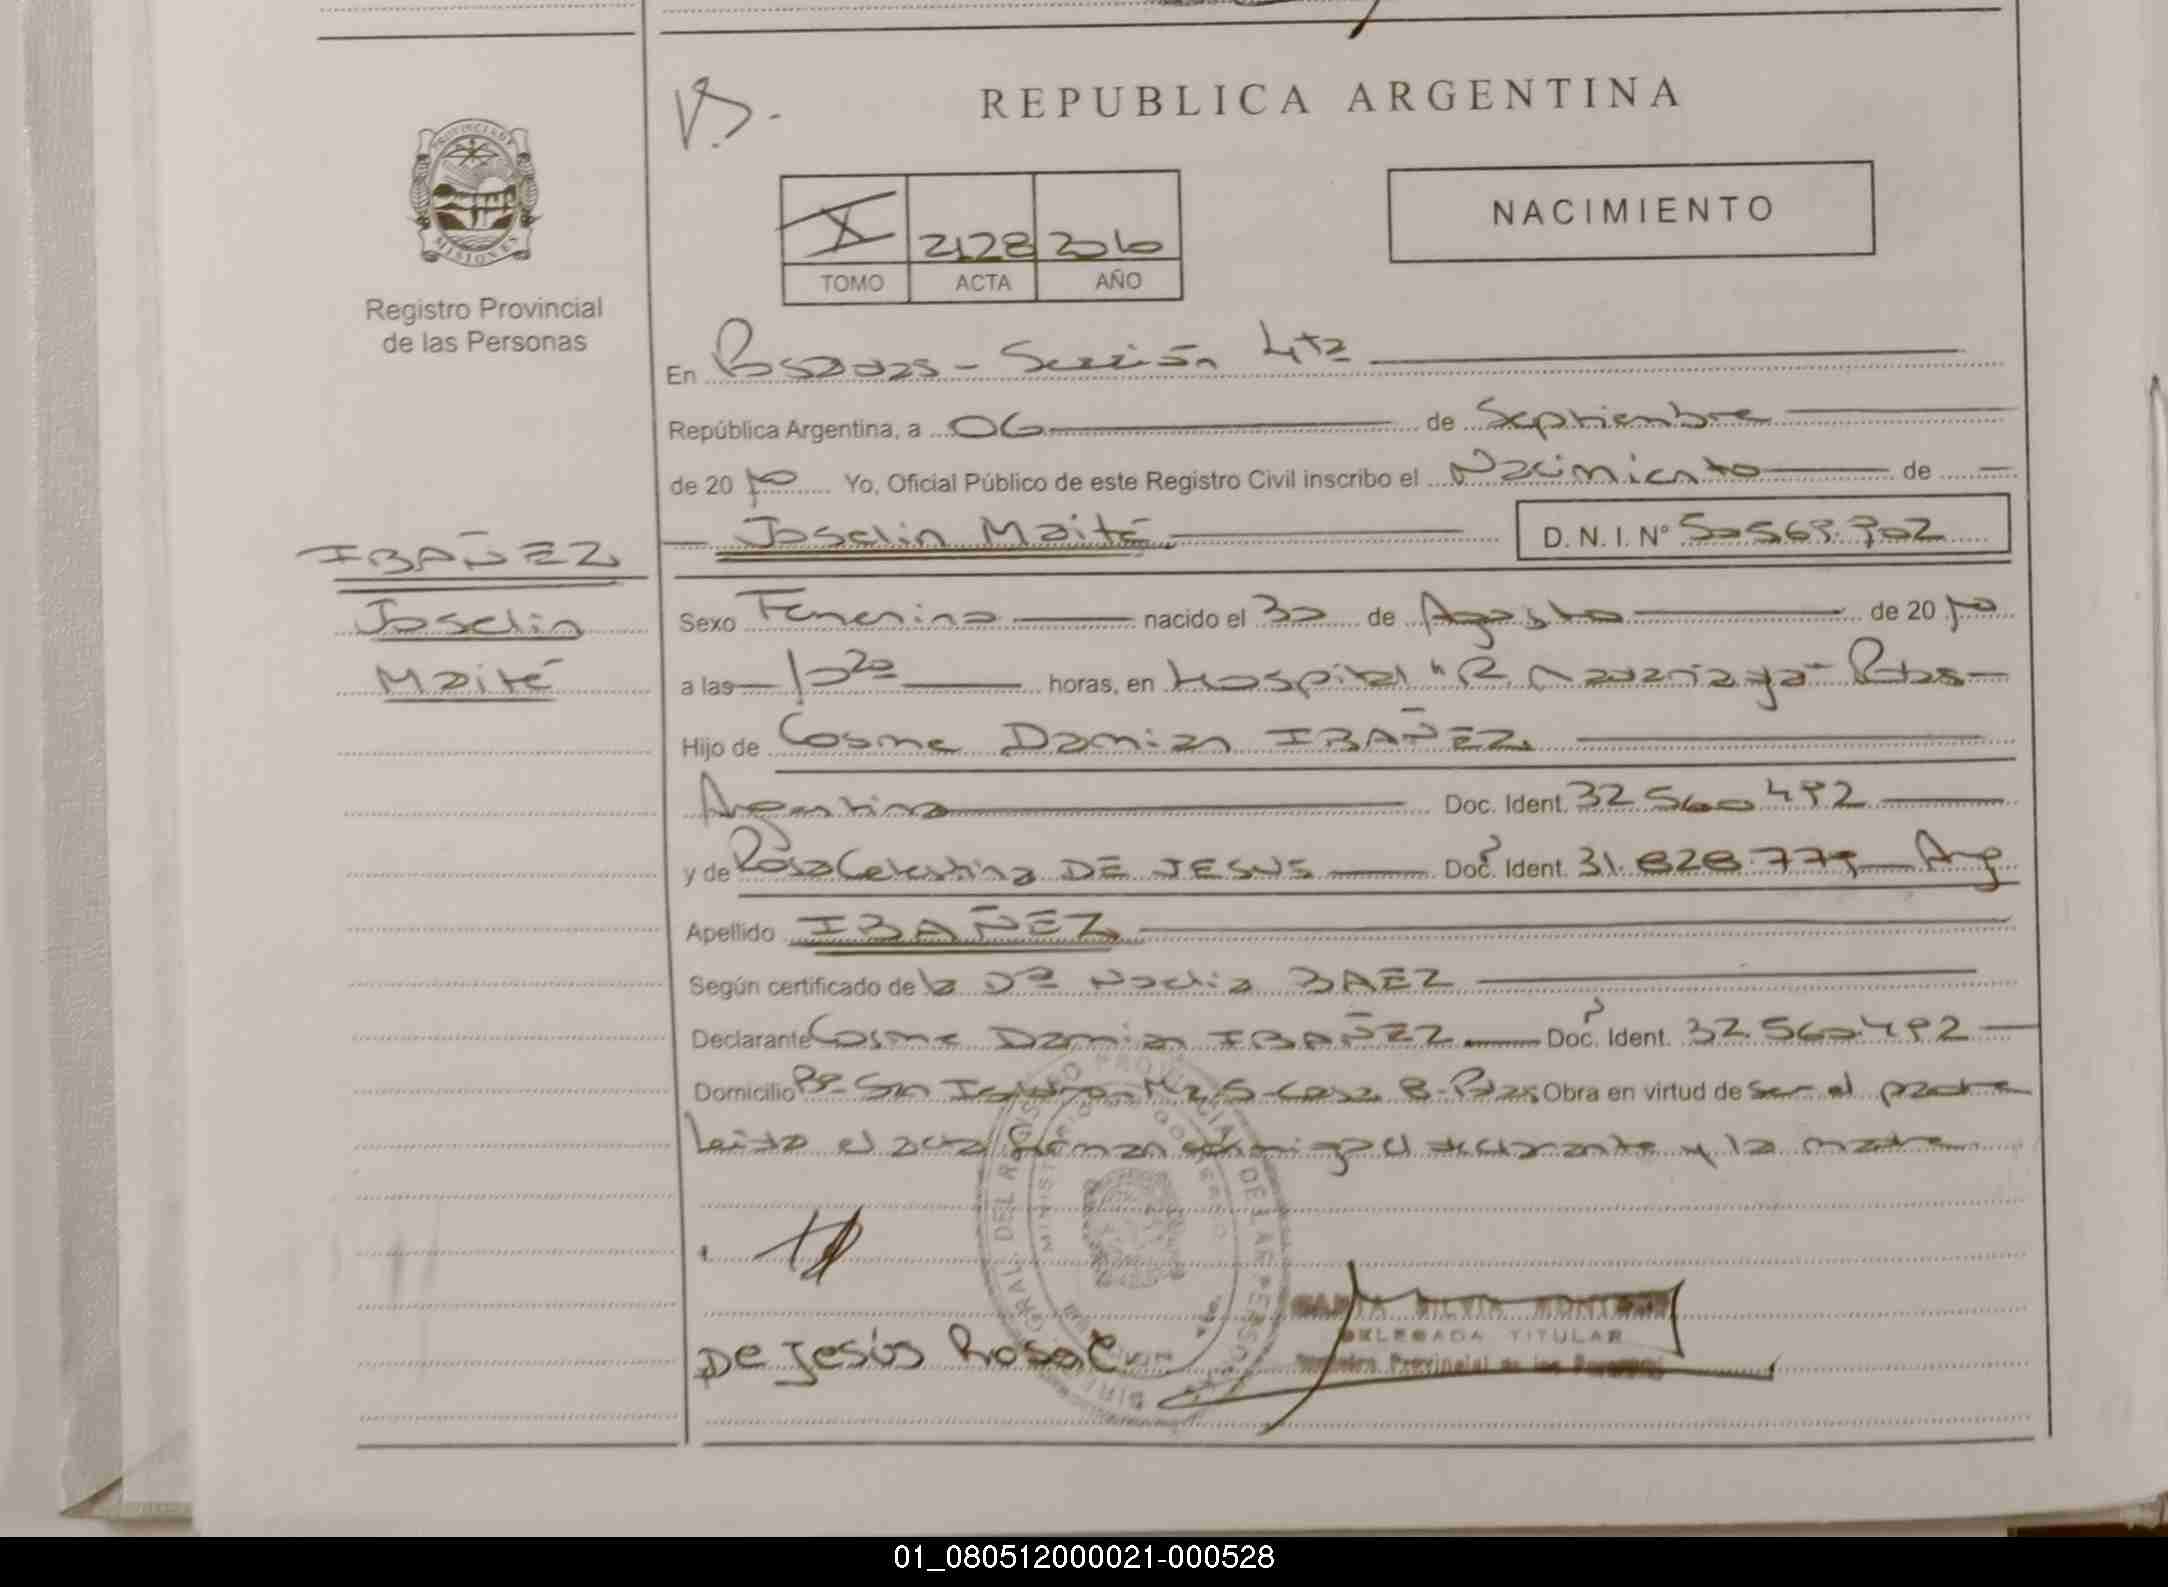 REPUBLICA ARGENTINA
PROVINCIA DE
MISIONES
Registro Provincial
de las Personas
NACIMIENTO
X 2128 2010
TOMO ACTA AÑO
En Posadas - Sección 4ta
República Argentina, a 06 de Septiembre
de 2010 Yo, Oficial Público de este Registro Civil inscribo el Nacimiento de
Joselin Maité D. N. I. Nº 50.569.902
IBAÑEZ
Joselin
Maité
Sexo Femenino nacido el 30 de Agosto de 2010
a las 10 20 horas, en Hospital "R. Madariaga" Pdas
Hijo de Cosme Damian IBAÑEZ
Argentino Doc. Ident. 32.560.492
y de Rosa Celestina DE JESUS Doc. Ident. 31.828.779 Arg
Apellido IBAÑEZ
Según certificado de la Dra Nadia BAEZ
Declarante Cosme Damian IBAÑEZ Doc. Ident. 32.560.492
Domicilio Bº San Isidro Mz 5 casa 8 - Pdas Obra en virtud de ser el padre
Leida el acta firman conmigo el declarante y la madre
De Jesús Rosa C
DELEGADA TITULAR
Registro Provincial de las Personas
01_080512000021-000528